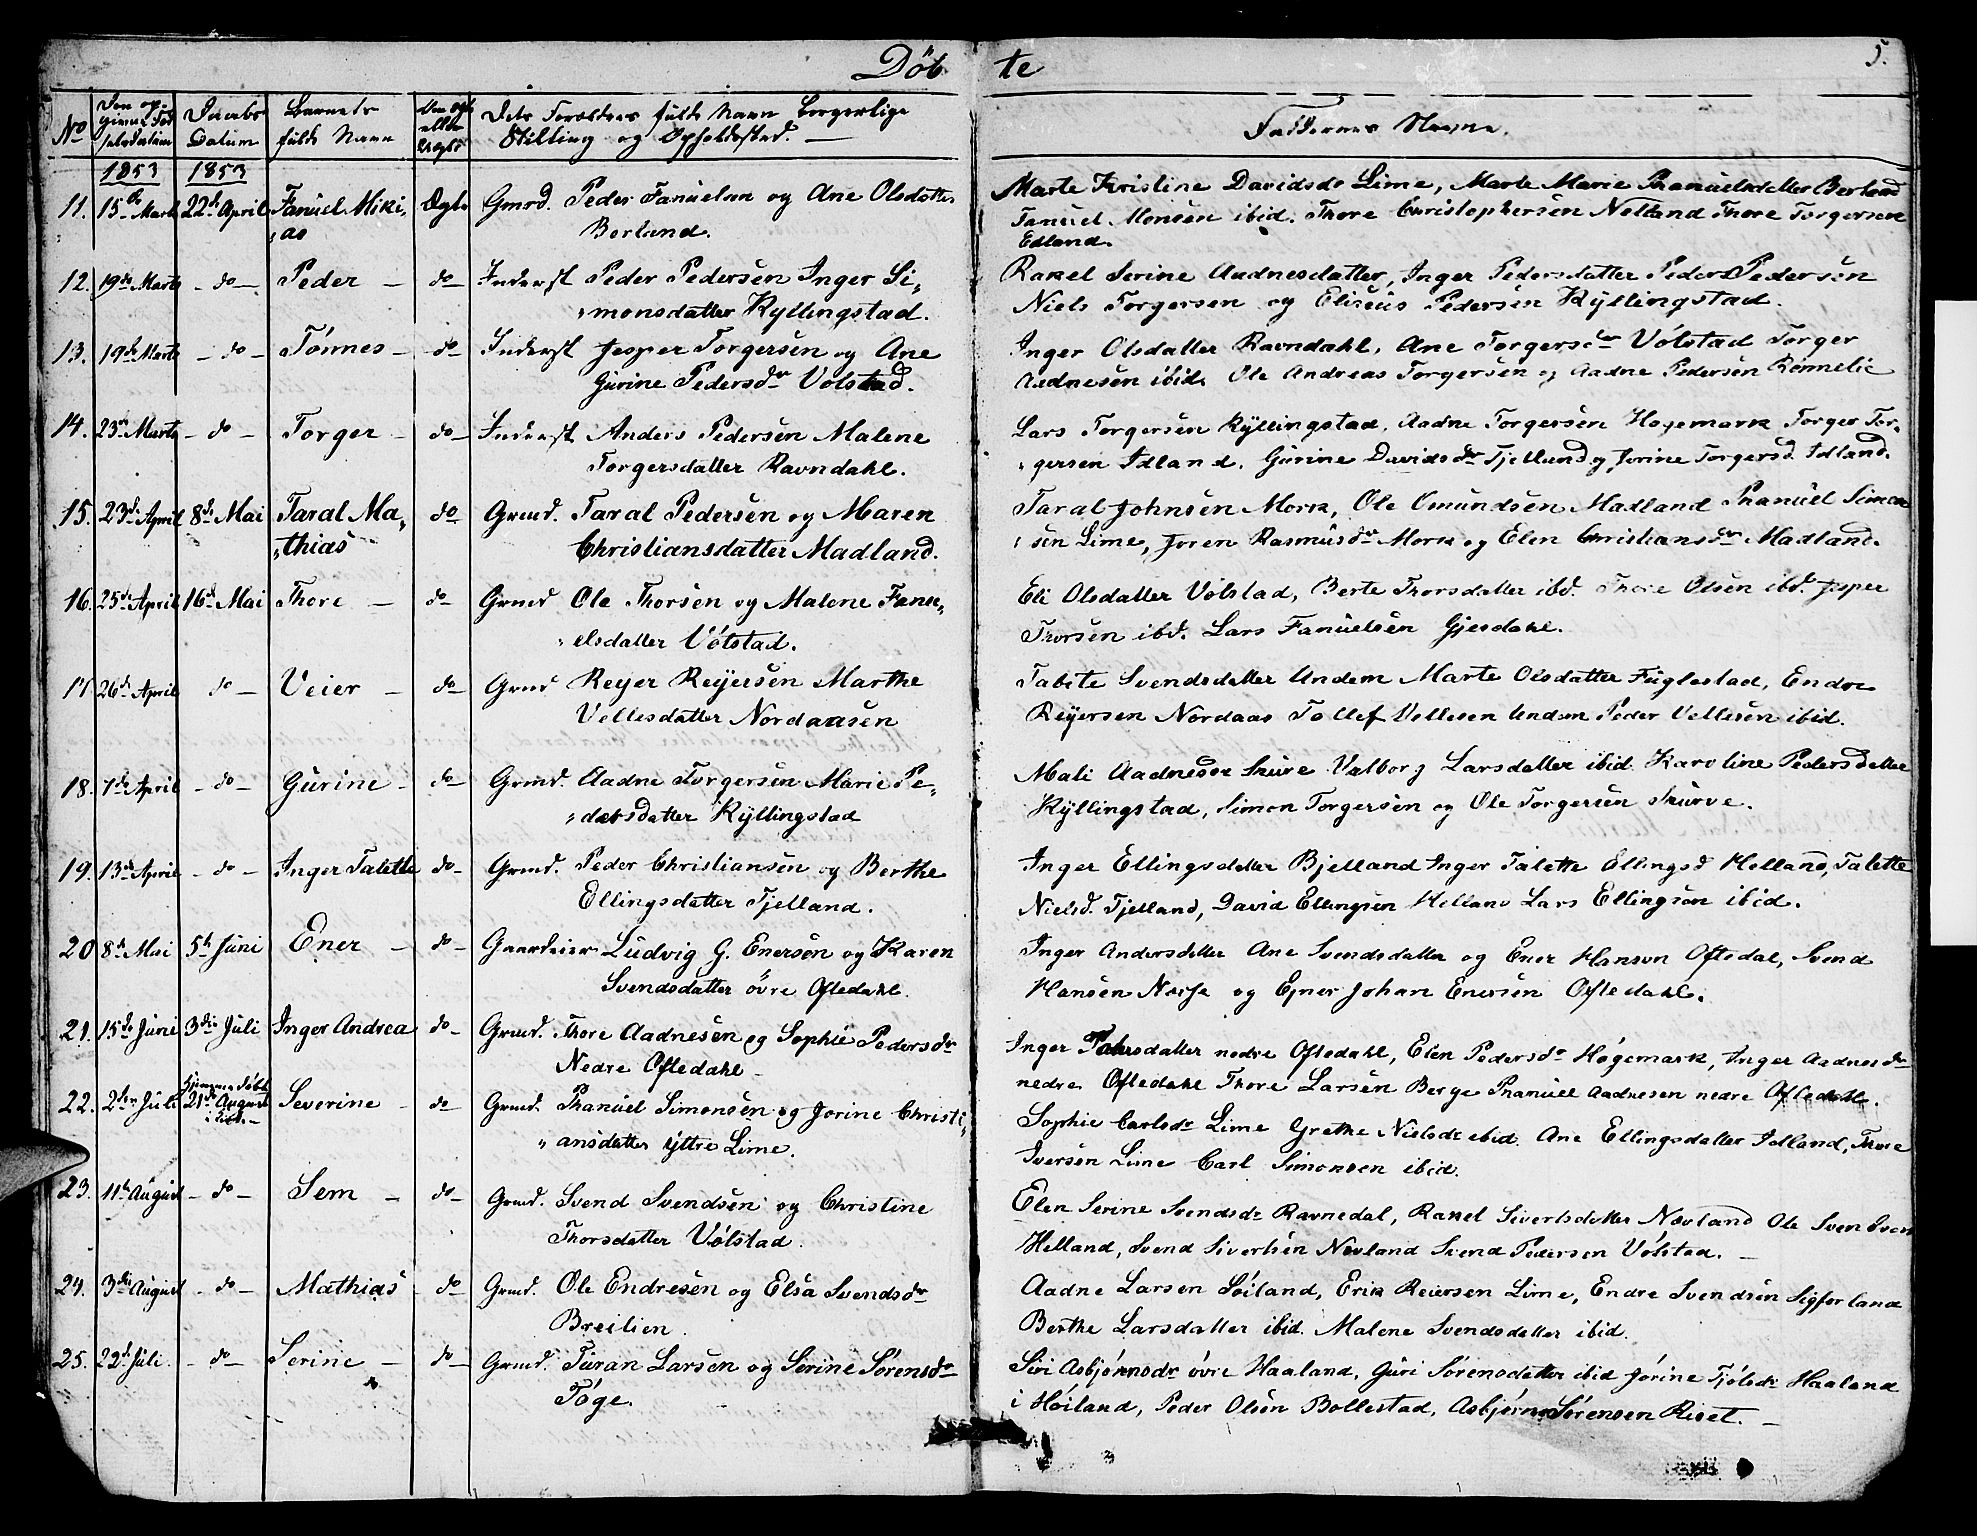 Döb te
5.
No
Den op-
given Fød
selsdatum
Daabs
Datum
Barnets
fulde Navn
Om ægte
eller
Uægte
Dets Forældres fulde Navn borgerlige
Stilling og Opholdssted. —
Faddernes Navne.
1853 1853
11. 15de Marts 22de April Fanuel Miki, Ægte Gmrd. Peder Fanuelsen og Ane Olsdatter
as Borland.
Marte Kristine Davidsdr Lime, Marte Marie Phanuelsdatter Borland
Fanuel Monsen ibid. Thore Christophersen Netland Thore Torgersen
Edland.
12. 19de Marts - do - Peder - do Inderst Peder Pedersen Inger Si,
monsdatter Kyllingstad.
Rakel Serine Aadnesdatter, Inger Pedersdatter Peder Pedersen
Niels Torgersen og Eliseus Pedersen Kyllingstad.
13. 19de Marts - do - Tönnes - do Inderst Jesper Torgersen og Ane
Gurine Pedersdr Volstad.
Inger Olsdatter Ravndahl, Ane Torgersdr Völstad Torger
Aadnesen ibid. Ole Andreas Torgersen og Aadne Pedersen Rönnelie
14. 23de Marts - do - Torger - do - Inderst Anders Pedersen Malene
Torgersdatter Ravndahl.
Lars Torgersen Kyllingstad, Aadne Torgersen Hogemark Torger Tor,
gersen Idland. Gurine Davidsdr Tjetland og Jorine Torgersd. Idland.
15. 23de April 8de Mai Taral Ma, do Grmd. Taral Pedersen og Maren
thias Christiansdatter Madland.
Taral Johnsen Mork, Ole Omundsen Madland Phanuel Simon
sen Lime, Joren Rasmusdr Mork og Elen Christiansdr Madland.
16. 25de April 16de Mai Thore - do Grmd Ole Thorsen og Malene Fanu,
elsdatter Völstad.
Eli Olsdatter Völstad, Berte Thorsdatter ibd. Thore Olsen ibd. Jesper
Thorsen ibd. Lars Fanuelsen Gjesdahl.
17 26de April do - Veier - do Grmd Reyer Reyersen Marthe
Vellesdatter Nordaasen
Tabite Svendsdatter Undem Marte Olsdatter Fuglestad, Endre
Reyersen Nordaas Tollef Vellesen Undem Peder Vellesen ibid.
18. 7de April - do - Gurine - do Grmd. Aadne Torgersen Marie Pe,
dersdatter Kyllingstad
Mali Aadnesdr Skurve Valborg Larsdatter ibid Karoline Pedersdatter
Kyllingstad, Simon Torgersen og Ole Torgersen Skurve.
19. 13de April - do - Inger Talette do- Grmd. Peder Christiansen og Berthe
Ellingsdatter Tjelland.
Inger Ellingsdatter Bjelland Inger Talette Ellingsd Helland, Talette
Nielsd. Tjelland, David Ellingsen Helland Lars Ellingsen ibid.
20 8de Mai 5te Juni Ener - do - Gaardeier Ludvig G. Enersen og Karen
Svendsdatter övre Oftedahl.
Inger Andersdatter Ane Svendsdatter og Ener Hansen Oftedal, Svend
Hansen Norje og Ejner Johan Enersen Oftedahl.
21. 15de Juni 3die Juli Inger Andrea do- Grmd. Thore Aadnesen og Sophie Pedersdr
Nedre Oftedahl -
Inger nedre Oftedahl, Elen Pedersdr Høgemark, Inger Aadnesdr
nedre Oftedahl Thore Larsen Berge Phanuel Aadnesen nedre Oftedahl.
22. 2den Juli Hjemme Döbt 21de August Severine - do - Grmd. Phanuel Simonsen og Jorine Christi,
ansdatter yttre Lime.
Sophie Carlsdr Lime Grethe Nielsdr ibid. Ane Ellingsdatter Idland, Thore
Iversen Lime Carl Simonsen ibid.
23. 11te August - do - Sem - do - Grmd. Svend Svendsen og Christine
Thorsdatter Völstad.
Elen Serine Svendsdr Ravnedal, Rakel Sivertsdatter Nævland Ole Svendsen
Helland, Svend Sivertsen Nevland Svend Pedersen Völstad. -
24. 3die August - do - Mathias - do Grmd. Ole Endresen og Elsa Svendsdr
Breilien.
Aadne Larsen Söiland, Erik Reiersen Lime, Endre Svendsen Sigforland
Berthe Larsdatter ibid. Malene Svendsdatter ibid.
25. 22de Juli. - do - Serine - do - Grmd. Turan Larsen og Serine Sörensdr
Töge.
Siri Asbjörnsdr övre Haaland, Guri Sörensdatter ibid Jörine Tjölsdr Haaland
i Höiland, Peder Olsen Bollestad, Asbjörn Sörensen Riset. -